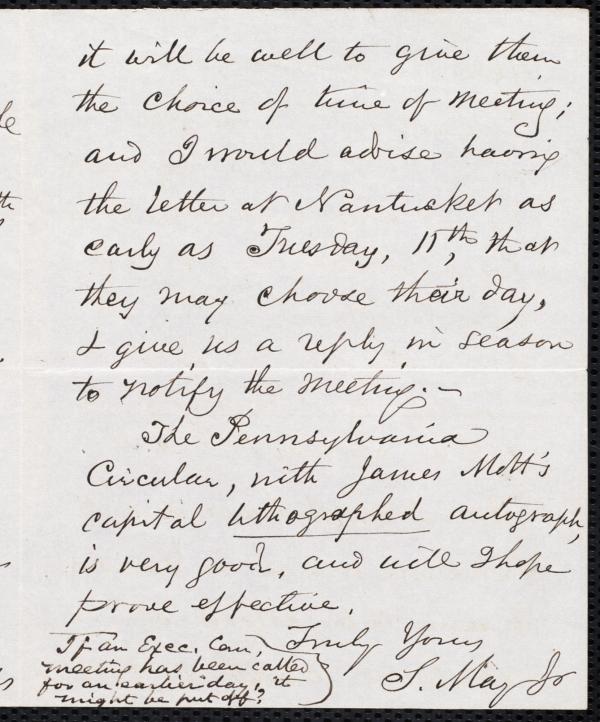 it will be well to give them
the choice of time of meeting;
and I would advise having
the letter at Nantucket as
early as Tuesday, 11th, that
they may choose their day,
& give us a reply in season
to notify the meeting.—
The Pennsylvania
Circular, with James Mott's
capital lithographed autograph,
is very good, and will I hope
prove effective.
Truly Yours
S. May Jr
If an Exec. Com.
meeting has been called
for an earlier day, it
might be put off?